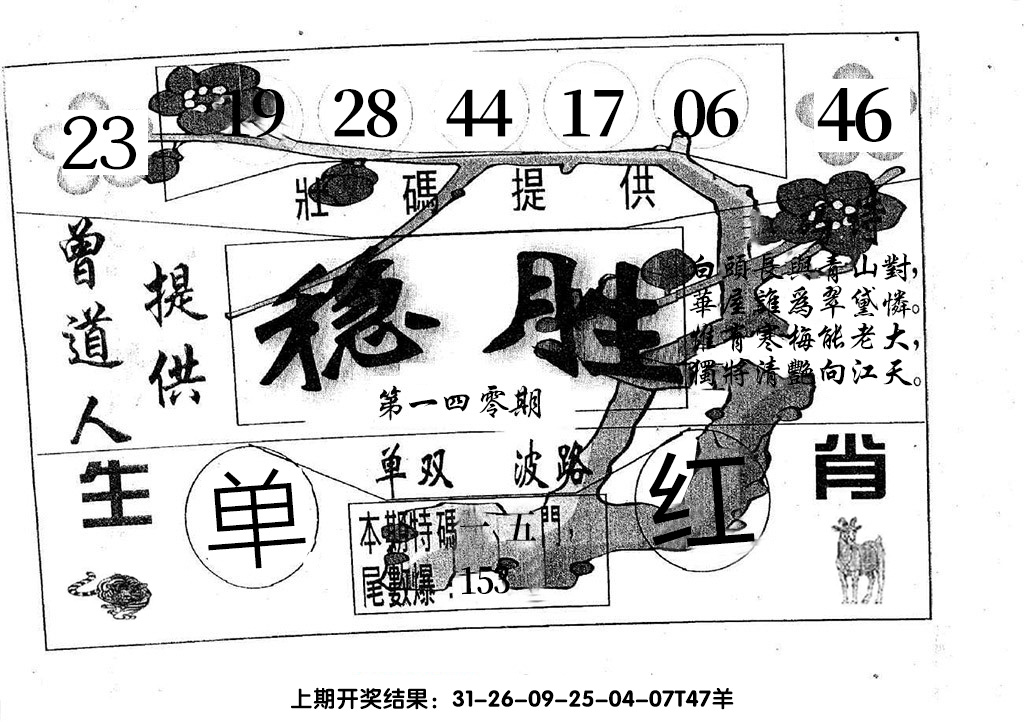 23 19 28 44 17 06 46
壯碼提供
特
曾道人
提供
稳胜
第一四零期
白頭長與青山對，
華屋誰爲翠黛憐。
惟有寒梅能老大，
獨將清艷向江天。
单双 波路
生肖
单
红
本期特碼一、五門，
尾數爆：153
上期开奖结果：31-26-09-25-04-07T47羊